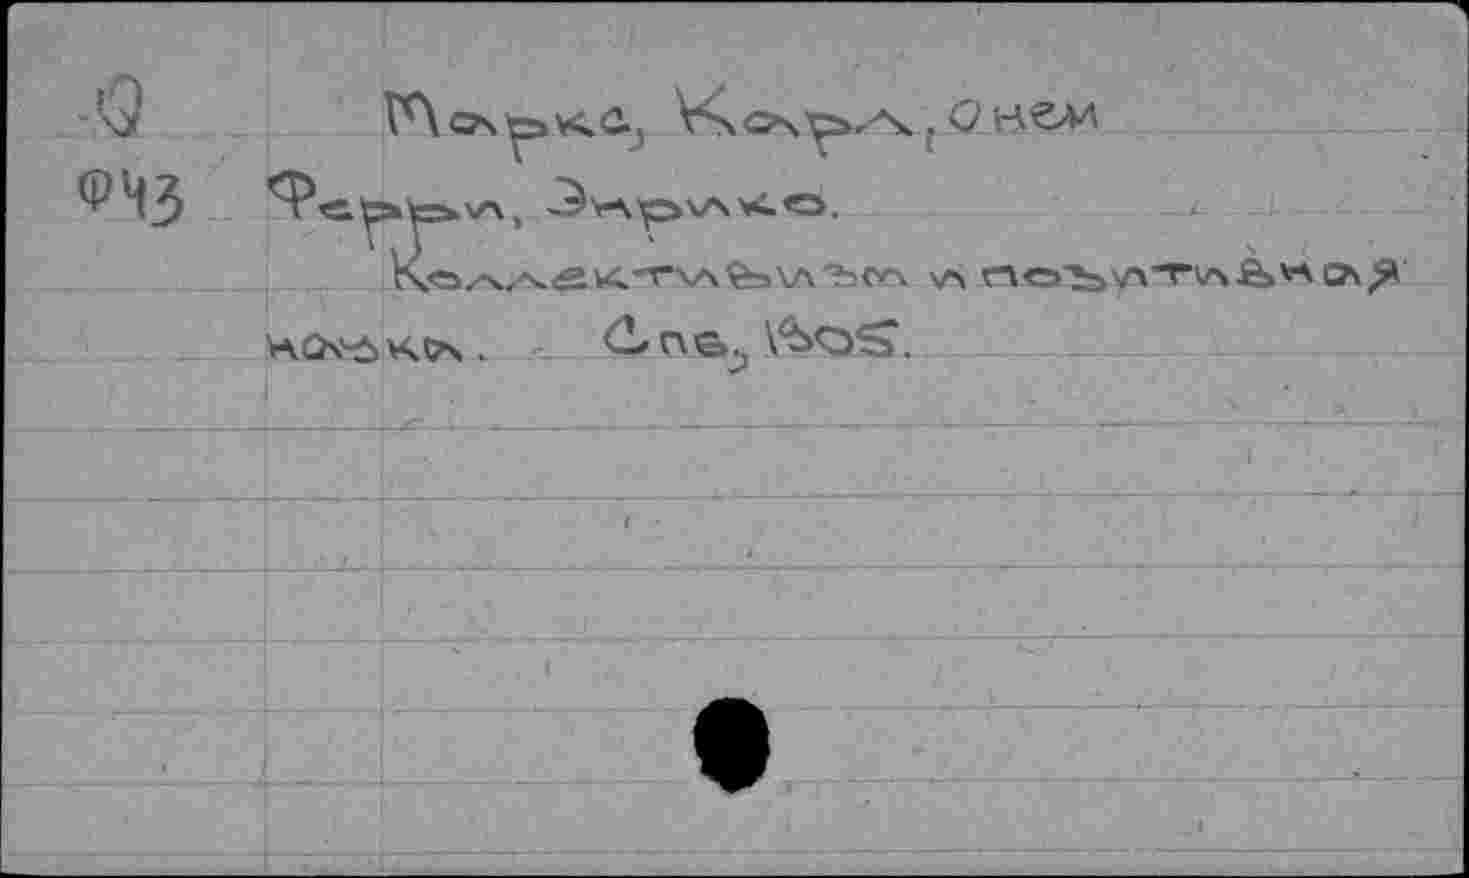 Q Маркс, Карл, о нем
Ф43 Ферри, Энрико.
Коллективизм и позитивная
наука. Спб, 1905.